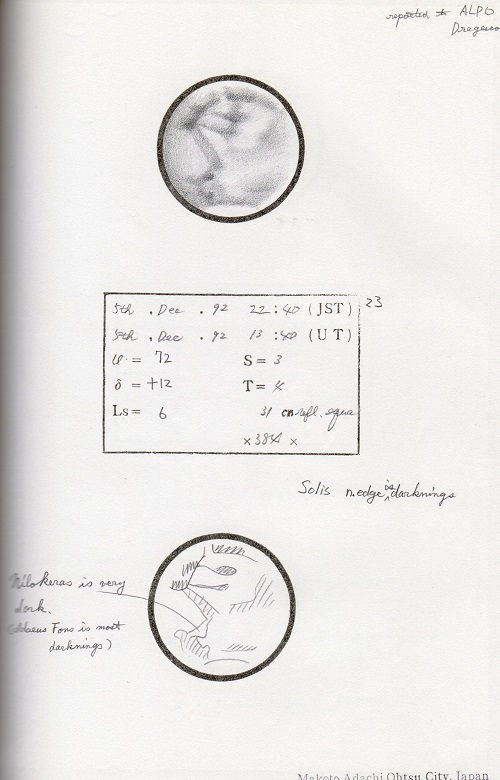 reported to ALPO
Dragesco
5th . Dec . 92 22:40 (JST) 23
5th . Dec . 92 13:40 (UT)
ω = 72 S = 3
δ = +12 T = 4
Ls = 6 31 cm refl. equa
×384 ×
Solis n.edge is darknings
Nilokeras is very
dark.
Fons is most
darknings)
Makoto Adachi Ohtsu City, Japan